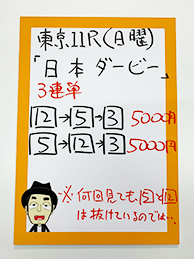 東京11R(日曜)
「日本ダービー」
3連単
12→5→3 5000円
5→12→3 5000円
※何回見ても5と12
は抜けているのでは…